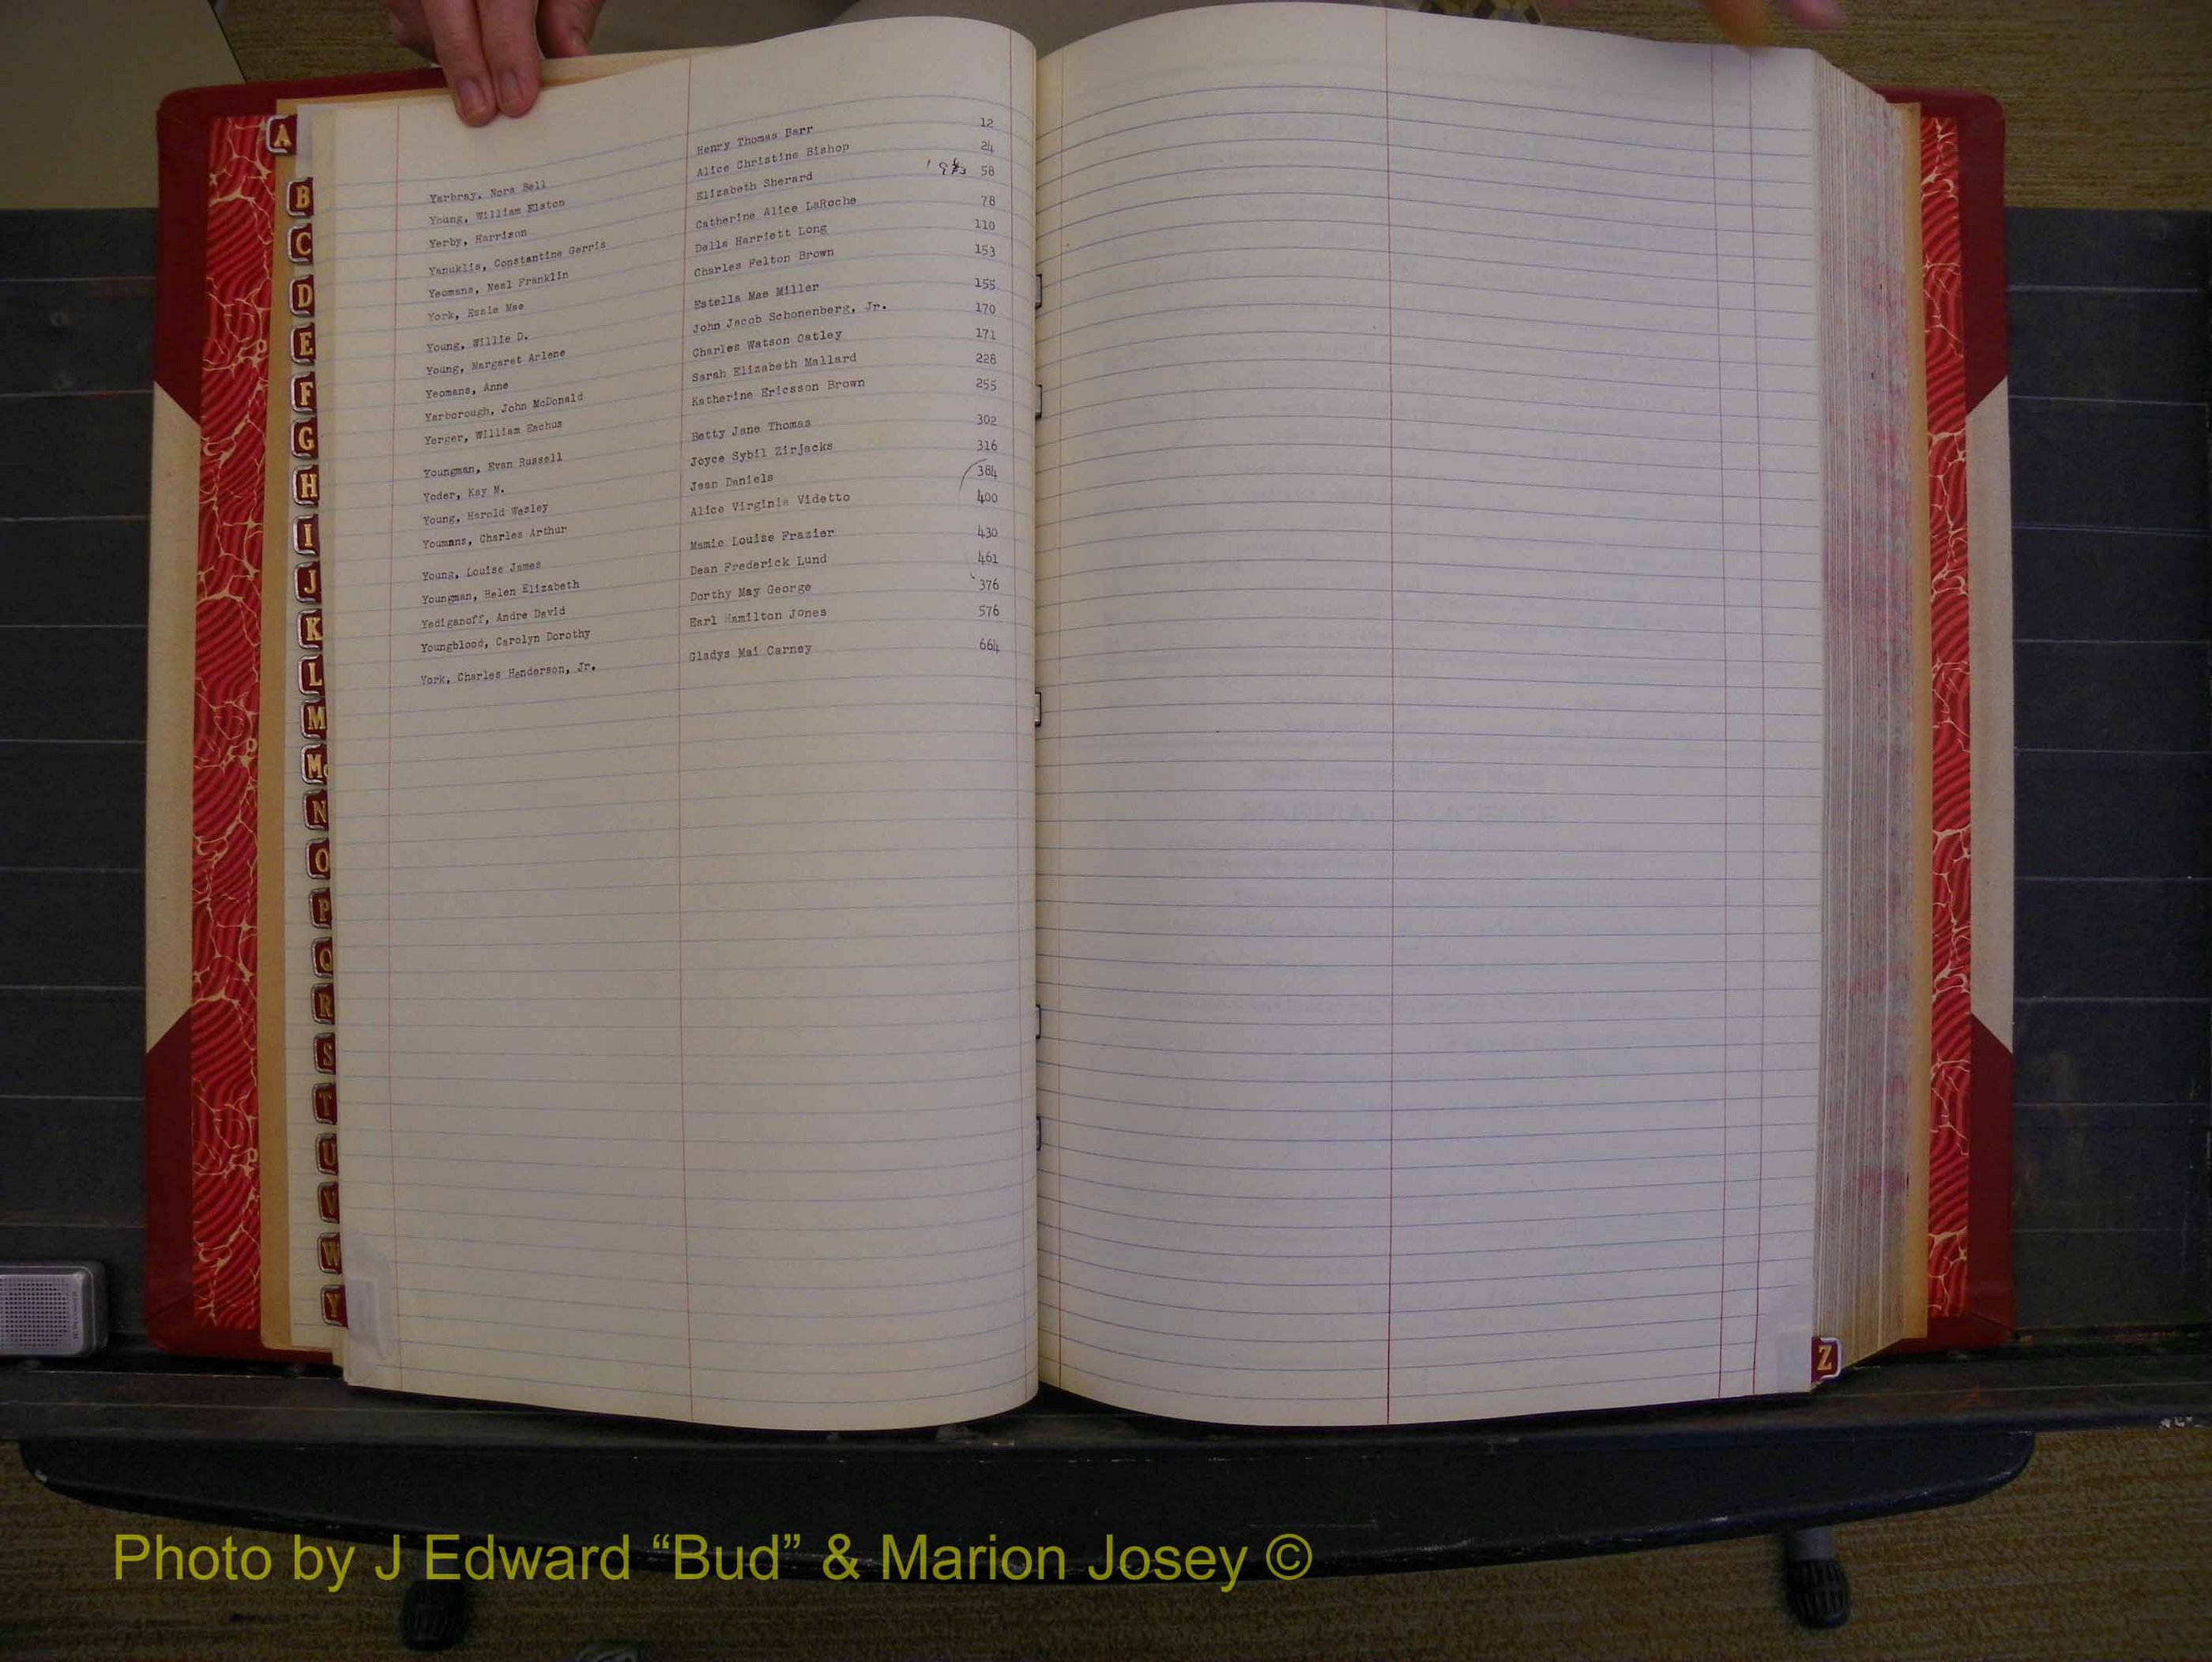 A
B
C
D
E
F
G
H
I
J
K
L
M
Mc
N
O
P
Q
R
S
T
U
V
W
Y
Yarbray, Nora Bell Henry Thomas Barr 12
Young, William Elston Alice Christine Bishop 24
Yerby, Harrison Elizabeth Sherard 58
Yanuklis, Constantine Gerris Catherine Alice LaRoche 78
Yeomans, Neal Franklin Della Harriett Long 110
York, Essie Mae Charles Felton Brown 153
Young, Willie D. Estella Mae Miller 155
Young, Margaret Arlene John Jacob Schonenberg, Jr. 170
Yeomans, Anne Charles Watson Oatley 171
Yarborough, John McDonald Sarah Elizabeth Mallard 228
Yerger, William Eachus Katherine Ericsson Brown 255
Youngman, Evan Russell Betty Jane Thomas 302
Yoder, Kay M. Joyce Sybil Zirjacks 316
Young, Harold Wesley Jean Daniels 384
Youmans, Charles Arthur Alice Virginia Videtto 400
Young, Louise James Mamie Louise Frazier 430
Youngman, Helen Elizabeth Dean Frederick Lund 461
Yediganoff, Andre David Dorthy May George 376
Youngblood, Carolyn Dorothy Earl Hamilton Jones 576
York, Charles Handerson, Jr. Gladys Mai Carney 664
MARRIAGE LICENSE
Z
Photo by J Edward “Bud” & Marion Josey ©